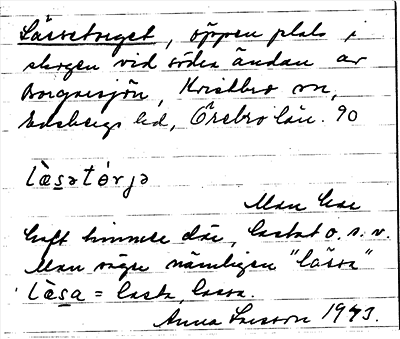 Lässetorget, öppen plats i
skogen vid södra ändan av
Borgarsjön, Kristbro vn,
Edsbergs hd, Örebro län. 90
læ̀sətórjə
Man har
haft timmer där, lastat o.s.v.
Man säger nämligen "lässa"
læ̀sa = lasta, lassa.
Anna Larsson 1943.